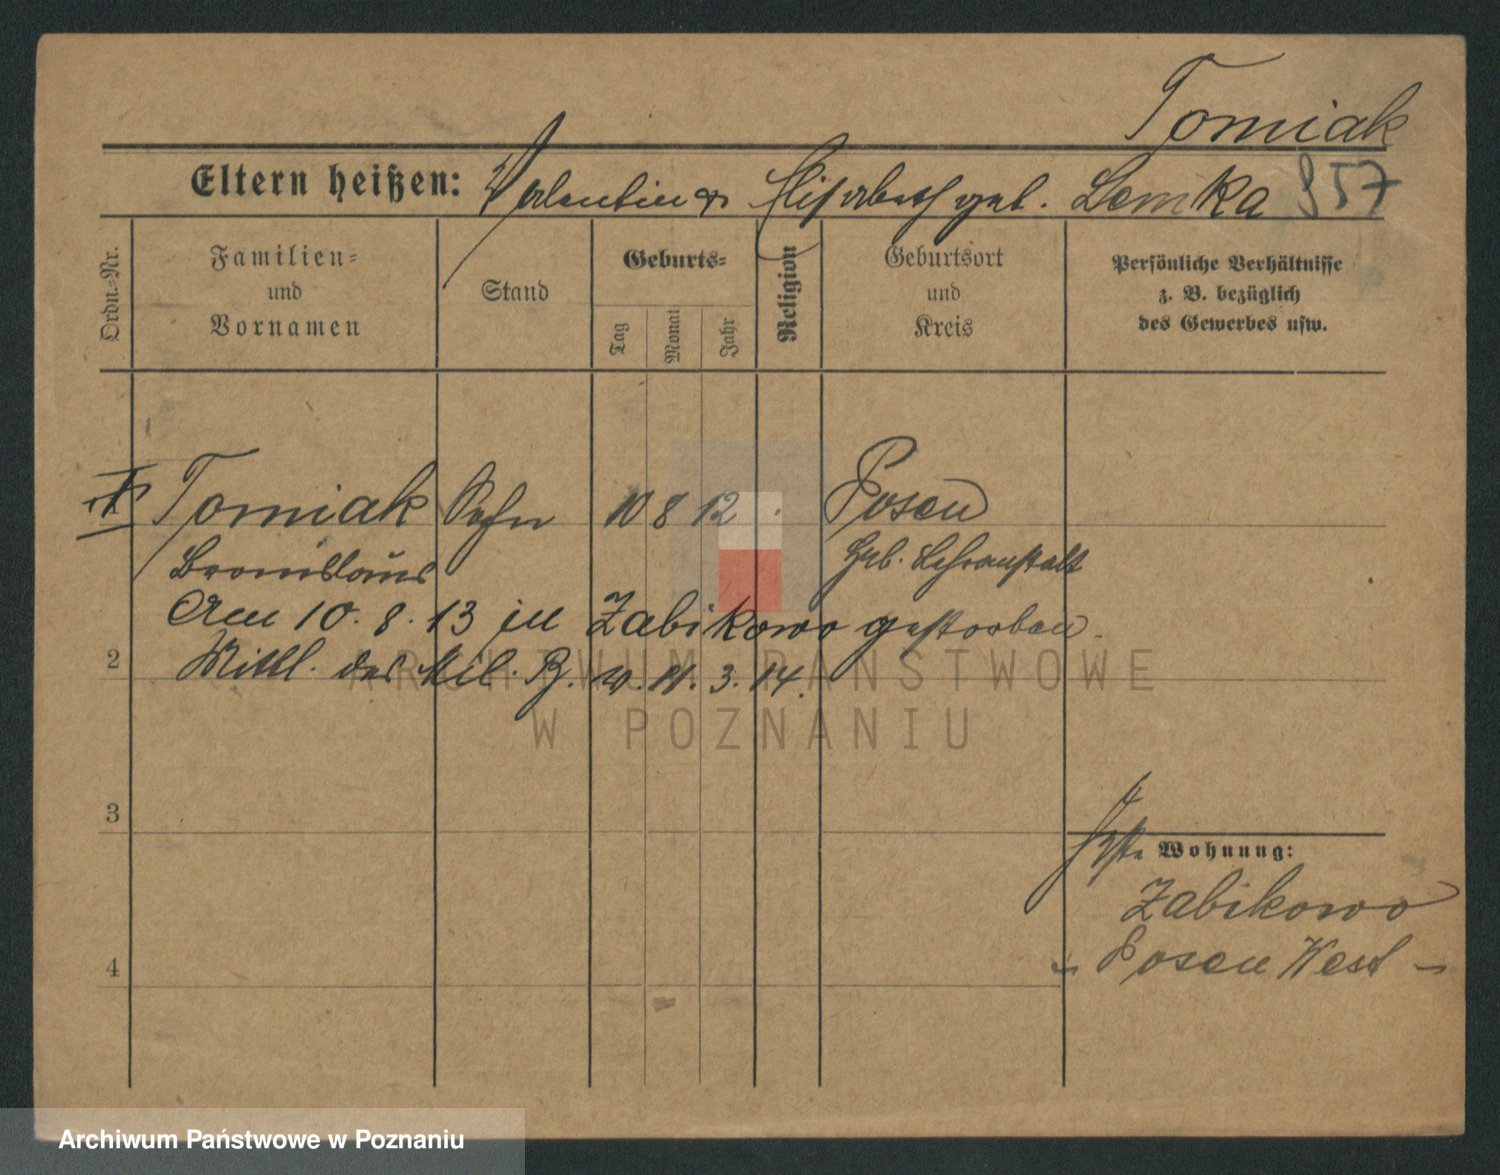 Tomiak
Eltern heißen: Valentin & Elisabeth geb. Lemka 957
Ordn.-Nr.
Familien-
und
Vornamen
Stand
Geburts-
Tag
Monat
Jahr
Religion
Geburtsort
und
Kreis
Persönliche Verhältnisse
z. B. bezüglich
des Gewerbes usw.
Tomiak Sohn 10 8 12. Posen
Bronislaus Heb. Lehranstalt
Am 10. 8. 13 in Zabikowo gestorben.
2 Mittl. des Mil. B. v. 11. 3. 14.
ARCHIWUM PAŃSTWOWE
W POZNANIU
3
Wohnung:
Zabikowo
4 Posen West
Archiwum Państwowe w Poznaniu